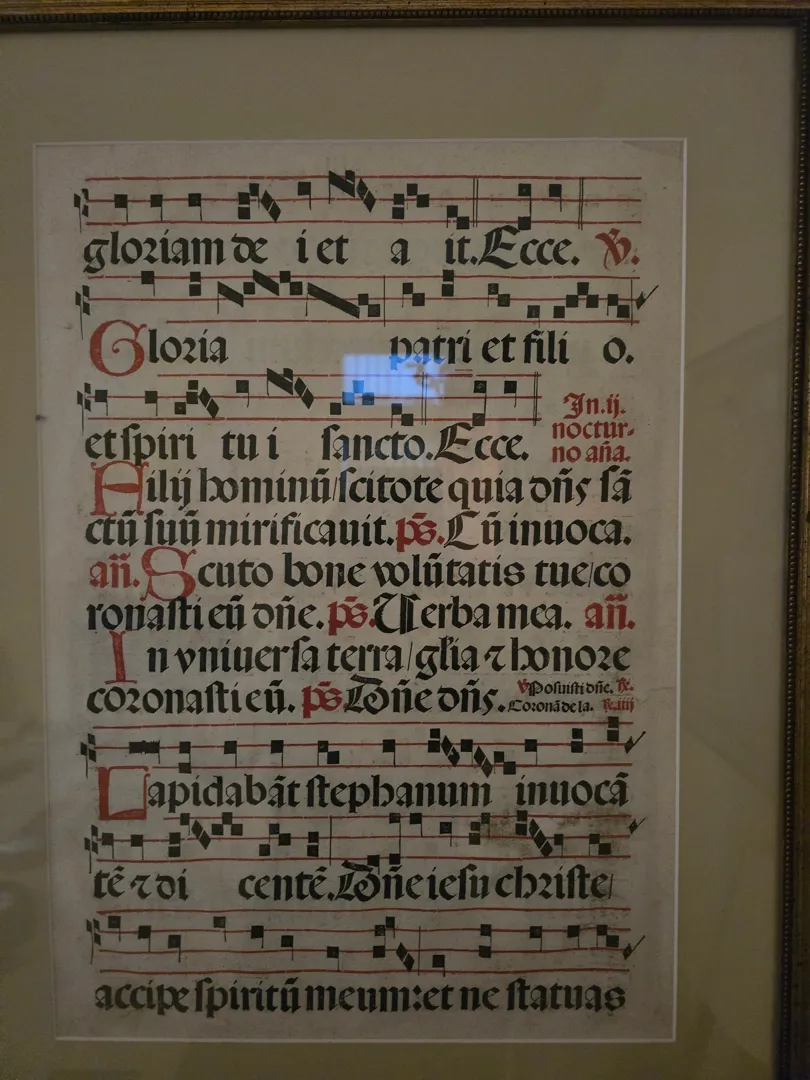 gloriam de i et a it. Ecce. ℣.
Gloria patri et fili o.
et spiri tu i sancto. Ecce.
In .ij.
noctur-
no aña.
Filij hominū/scitote quia dn̄s sā
ctū suū mirificauit. p̄s. Cū inuoca.
an̄. Scuto bone volūtatis tue/co
ronasti eū dn̄e. p̄s. Uerba mea. an̄.
In vniuersa terra/gl̄ia ⁊ honore
coronasti eū. p̄s. Dn̄e dn̄s.
℣ Posuisti dn̄e. ℟.
Coronā de la. ℟. iiij
Lapidabāt stephanum inuocā
tē ⁊ di centē. Dn̄e iesu christe/
accipe spiritū meum: et ne statuas